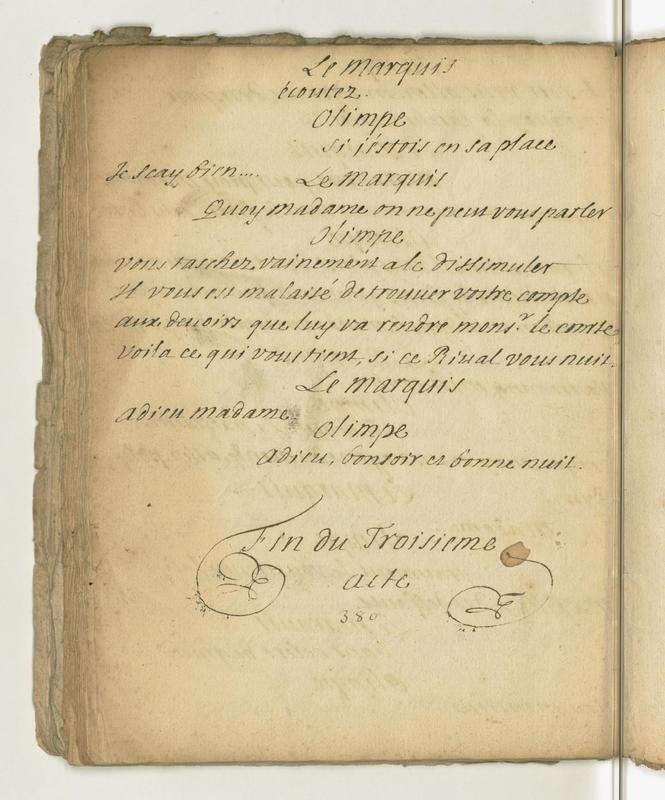 Le Marquis
écoutez.
Olimpe
si j'éstois en sa place
Je scay bien....
Le Marquis
Quoy madame on ne peut vous parler
Olimpe
vous taschez vainement a le dissimuler
Il vous est malaisé de trouuer vostre compte
aux deuoirs que luy va rendre mons.r le comte
voila ce qui vous tient, si ce Riual vous nuit.
Le Marquis
adieu madame
Olimpe
adieu, bonsoir et bonne nuit.
Fin du Troisieme
acte
380